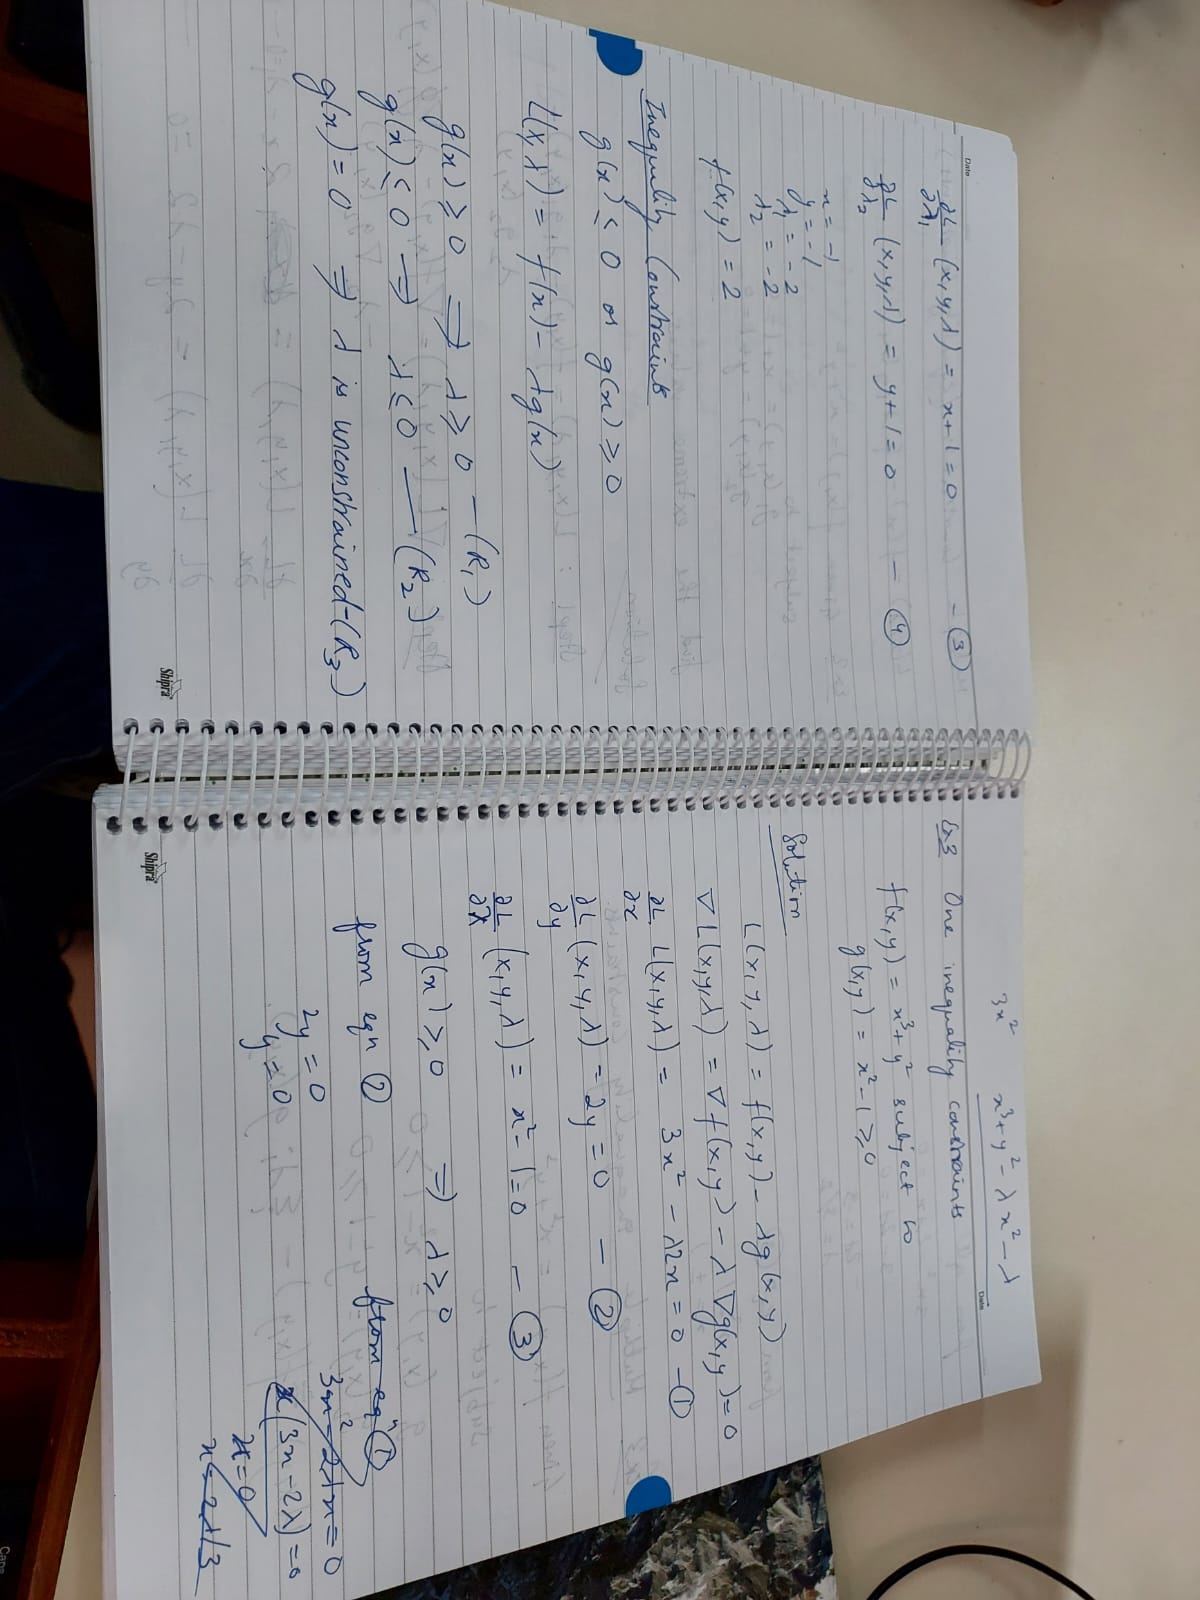 Date
∂L/∂λ₁ (x,y,λ) = x+1=0 — ③
∂L/∂λ₂ (x,y,λ) = y+1=0 — ④
x = -1
y = -1
λ₁ = -2
λ₂ = -2
f(x,y) = 2
Inequality Constraints
g(x) ≤ 0 or g(x) ≥ 0
L(x,λ) = f(x) - λg(x)
g(x) ≥ 0 ⇒ λ ≥ 0 — (R₁)
g(x) ≤ 0 ⇒ λ ≤ 0 — (R₂)
g(x) = 0 ⇒ λ is unconstrained-(R₃)
Shipra
3x² x³+y²-λx²-λ
Date
Ex3 One inequality constraints
f(x,y) = x³+y² subject to
g(x,y) = x²-1≥0
Solution
L(x,y,λ) = f(x,y) - λg(x,y)
∇L(x,y,λ) = ∇f(x,y) - λ∇g(x,y)=0
∂L/∂x L(x,y,λ) = 3x² - λ2x = 0 — ①
∂L/∂y (x,y,λ) = 2y = 0 — ②
∂L/∂λ (x,y,λ) = x²-1=0 — ③
g(x) ≥ 0 ⇒ λ ≥ 0
from eqn ② from eqⁿ ①
2y = 0 3x²-2λx=0
y = 0 x(3x-2λ)=0
x=0
x=2λ/3
Shipra